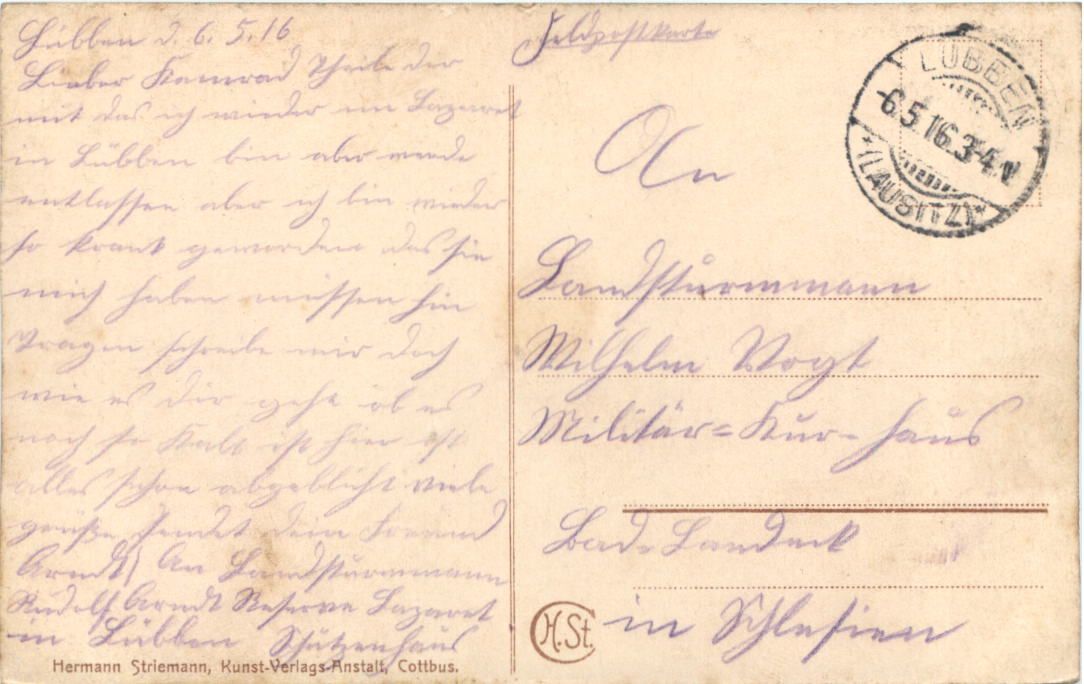 Lübben d. 6. 5. 16
Lieber Kamrad Theile dir
mit das ich wieder im Lazaret
in Lübben bin aber werde
entlassen aber ich bin wieder
so krank geworden das sie
mich haben müssen hin
Tragen schreibe mir doch
wie es dir geht ob es
noch so Kalt ist hier ist
alles schon abgeblicht viele
grüße sendet dein Freund
Arndt) An Landstürmmann
Rudolf Arndt Reserve Lazaret
in Lübben Schützenhaus
Hermann Striemann, Kunst-Verlags-Anstalt, Cottbus.
Feldpostkarte
LÜBBEN
6.5.16.3-4
*(LAUSITZ)*
An
Landstürmmann
Wilhelm Vogt
Militär=Kur=haus
Bad=Landeck
in Schlesien
H.St.